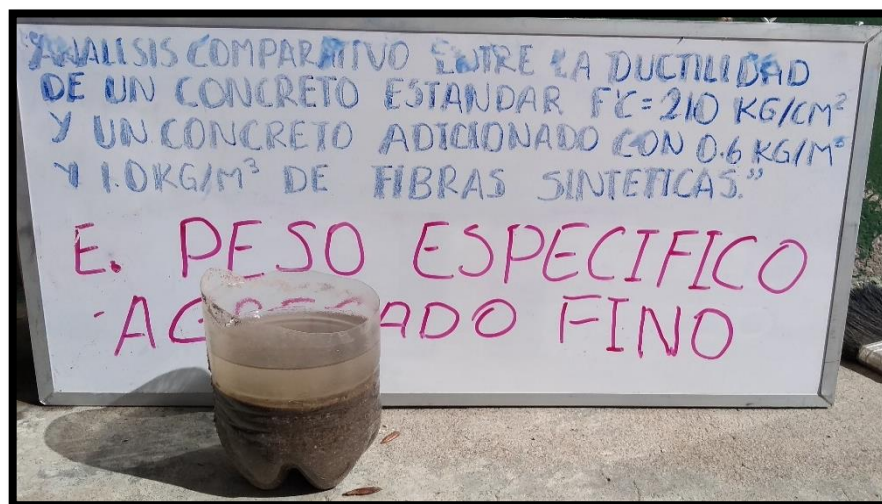 "ANALISIS COMPARATIVO ENTRE LA DUCTILIDAD
DE UN CONCRETO ESTANDAR F'C=210 KG/CM²
Y UN CONCRETO ADICIONADO CON 0.6 KG/M³
Y 1.0KG/M³ DE FIBRAS SINTETICAS."
E. PESO ESPECIFICO
AGREGADO FINO